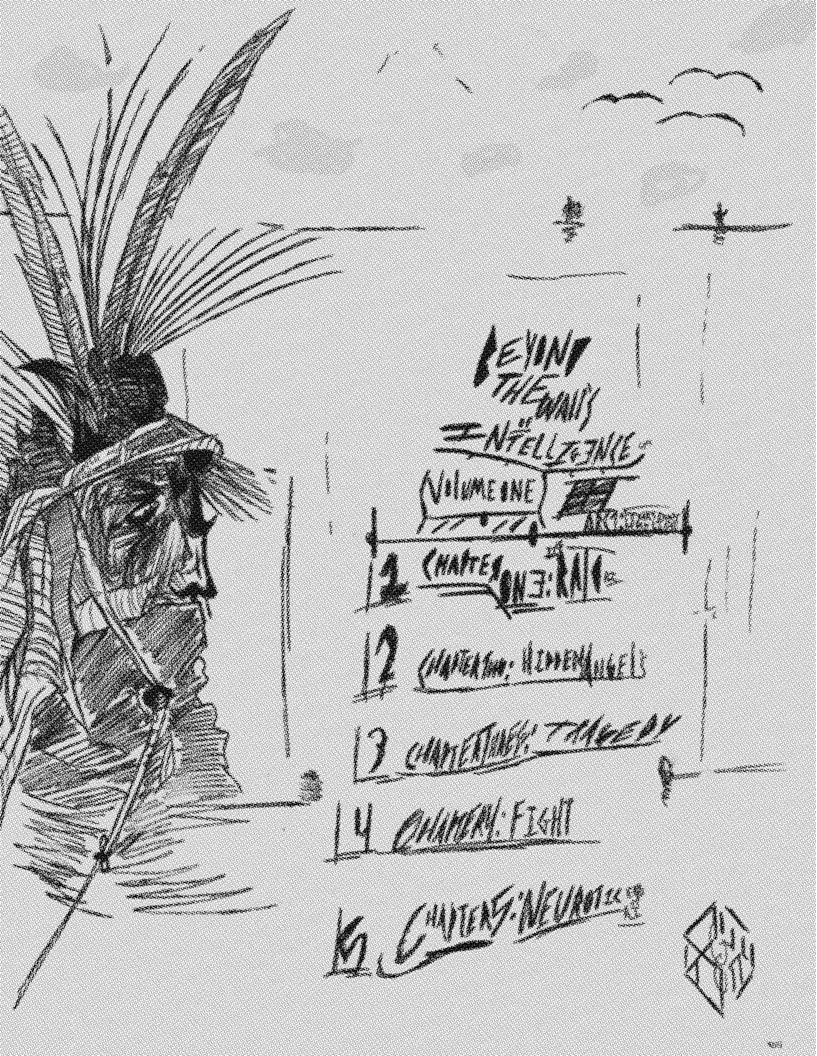 BEYOND
THE
WALLS
OF
INTELLIGENCE
VOLUME ONE
1 CHAPTER ONE:
2 CHAPTER TWO: HIDDEN ANGELS
3 CHAPTER THREE: TRAGEDY
4 CHAPTER 4: FIGHT
5 CHAPTER 5: NEUROTIC